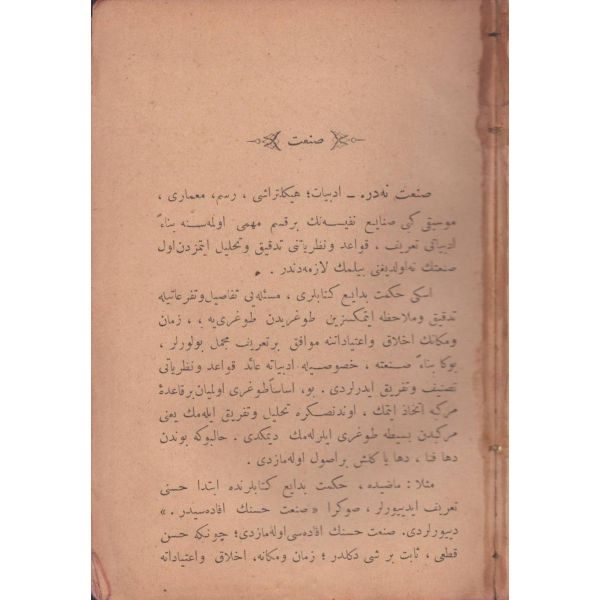 صنعت
صنعت نه‌در. ــ ادبيات؛ هيكلتراشى ، رسم، معمارى ،
موسيقى كبى صنايع نفيسه‌نك برقسم مهمى اولمه‌سنه بناءً
ادبياتى تعريف ، قواعد ونظرياتنى تدقيق وتحليل ايتمزدن اول
صنعتك نه‌اولديغنى بيلمك لازمه‌دندر .
اسكى حكمت بدايع كتابلرى ، مسئله‌يى تفاصيل وتفرعاتيله
تدقيق وملاحظه ايتمكسزين طوغريدن طوغرى‌يه ، ، زمان
ومكانك اخلاق واعتياداتنه موافق برتعريف مجمل بولورلر ،
بوكا بناءً صنعته ، خصوصيله ادبياته عائد قواعد ونظرياتى
تصنيف وتفريق ايدرلردى . بو، اساساً طوغرى اوليان برقاعدهٔ
مركبه اتخاذ ايتمك . اوندنصكره تحليل وتفريق ايله‌مك يعنى
مركبدن بسيطه طوغرى ايلرله‌مك ديمكدى . حالبوكه بوندن
دها فنا ، دها ياكلش براصول اوله‌مازدى .
مثلا : ماضيده ، حكمت بدايع كتابلرنده ابتدا حسنى
تعريف ايدييورلر ، صوكرا « صنعت حسنك افاده‌سيدر . »
دييورلردى. صنعت حسنك افاده‌سى اوله‌مازدى؛ چونكه حسن
قطعى ، ثابت بر شى دكلدر ؛ زمان ومكانه، اخلاق واعتياداته